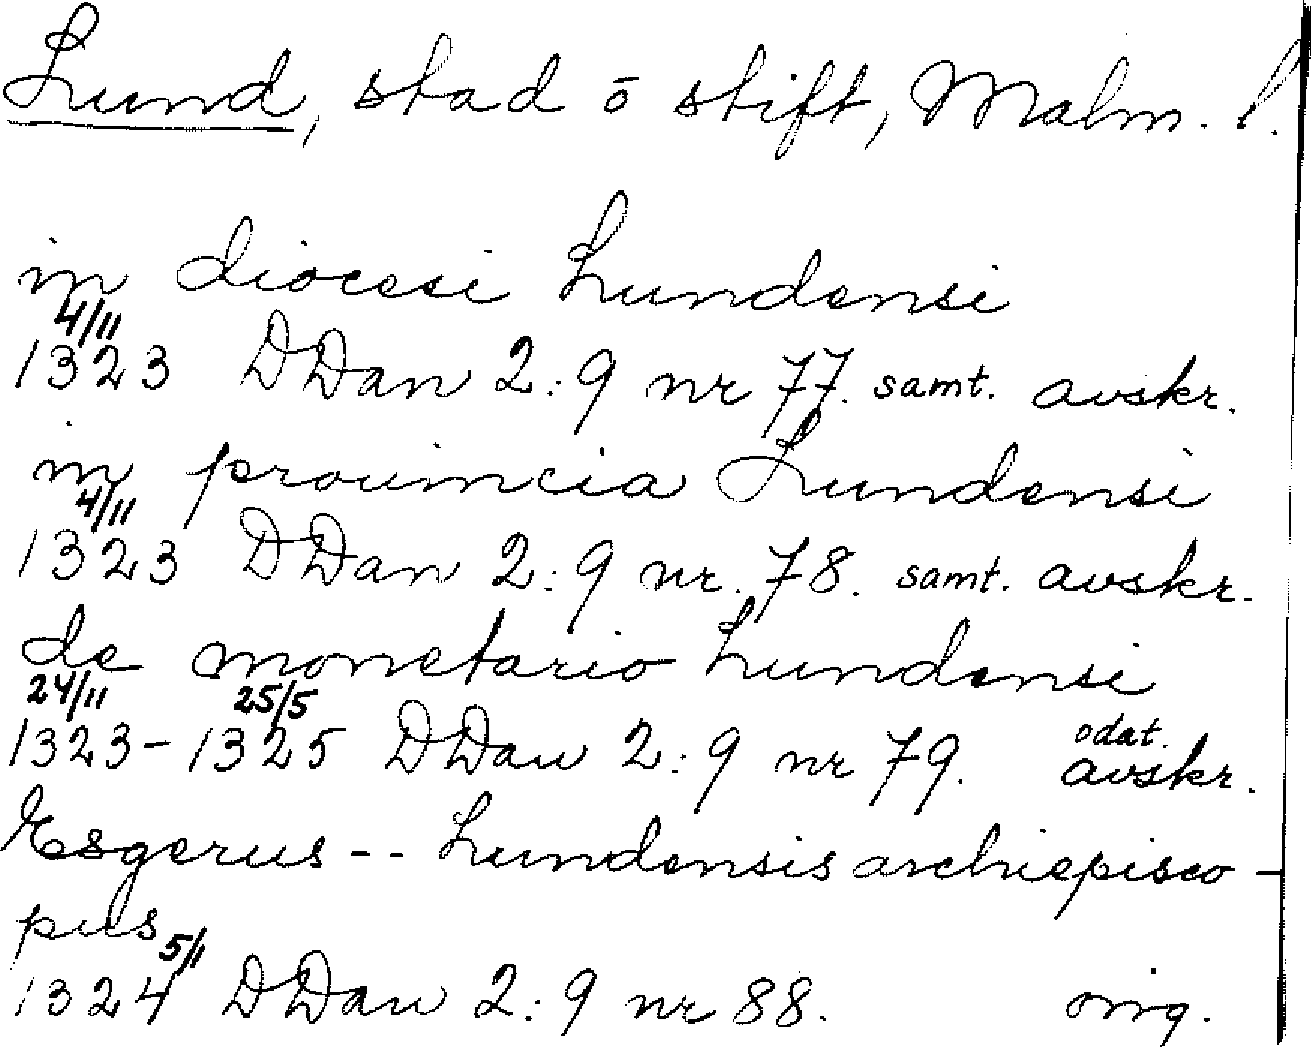 Lund, stad ō stift, Malm. l.
in diocesi Lundensi
4/11
1323 DDan 2:9 nr 77. samt. avskr.
in prouincia Lundensi
4/11
1323 DDan 2:9 nr. 78. samt. avskr.
de monetario Lundensi
24/11 25/5 odat.
1323-1325 DDan 2:9 nr 79. avskr.
Esgerus -- Lundensis archiepisco-
pus
5/1
1324 DDan 2:9 nr 88. orig.